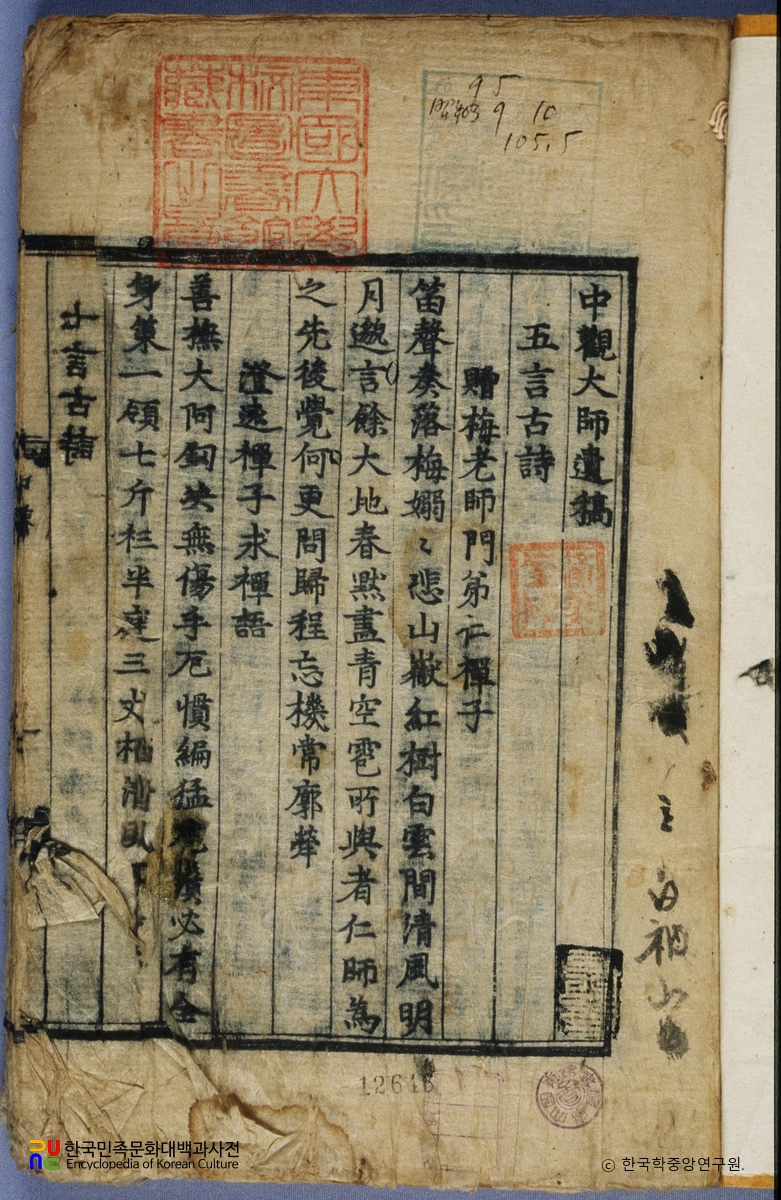 中觀大師遺稿
五言古詩
贈梅老師門弟仁禪子
笛聲奏落梅嫋〻悲山嶽紅樹白雲間清風明
月邀言餘大地春黙畫青空雹所與者仁師為
之先後覺何更問歸程忘機常廓犖
澄遠禪子求禪語
善撫大阿釼缺無傷手厄慣編猛虎鬚必有全
身策一領七斤衫半
七言古詩
東國大學校圖書館藏書之章
9 5
昭和 9 10
105.5
12646
한국민족문화대백과사전
Encyclopedia of Korean Culture
© 한국학중앙연구원.